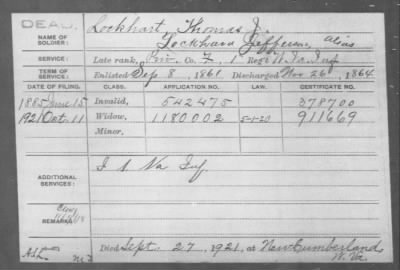 DEAD.
NAME OF SOLDIER: Lockhart Thomas J.
Lockhard Jefferson, alias
SERVICE: Late rank, Priv. Co. F, 1 Reg't W. Va. Inf
TERM OF SERVICE: Enlisted Sep. 8, 1861 Discharged Nov 26, 1864
DATE OF FILING. CLASS. APPLICATION NO. LAW. CERTIFICATE NO.
1885 June 15 Invalid, 542475 378700
1921 Oct. 11 Widow, 1180002 5-1-20 911669
Minor,
ADDITIONAL SERVICES: I 1 Va Inf.
REMARKS:
Died Sept. 27, 1921, at New Cumberland
W. Va.